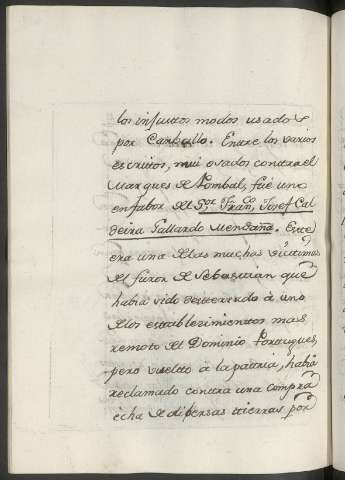 los injustos modos usados
por Carballo. Entre los varios
escritos, mui osados contra el
Marques de Pombal, fué uno
en fabor del Sor. Fran. Josef Cal
deira Gallardo Mendaña. Este
era una de las muchas victimas
del furor de Sebastian que
habia sido desterrado à uno
de los establezimientos mas
remoto del Dominio Portugues,
pero vuelto à la pattria, habia
reclamado contra una compra
écha de dibersas tierras por